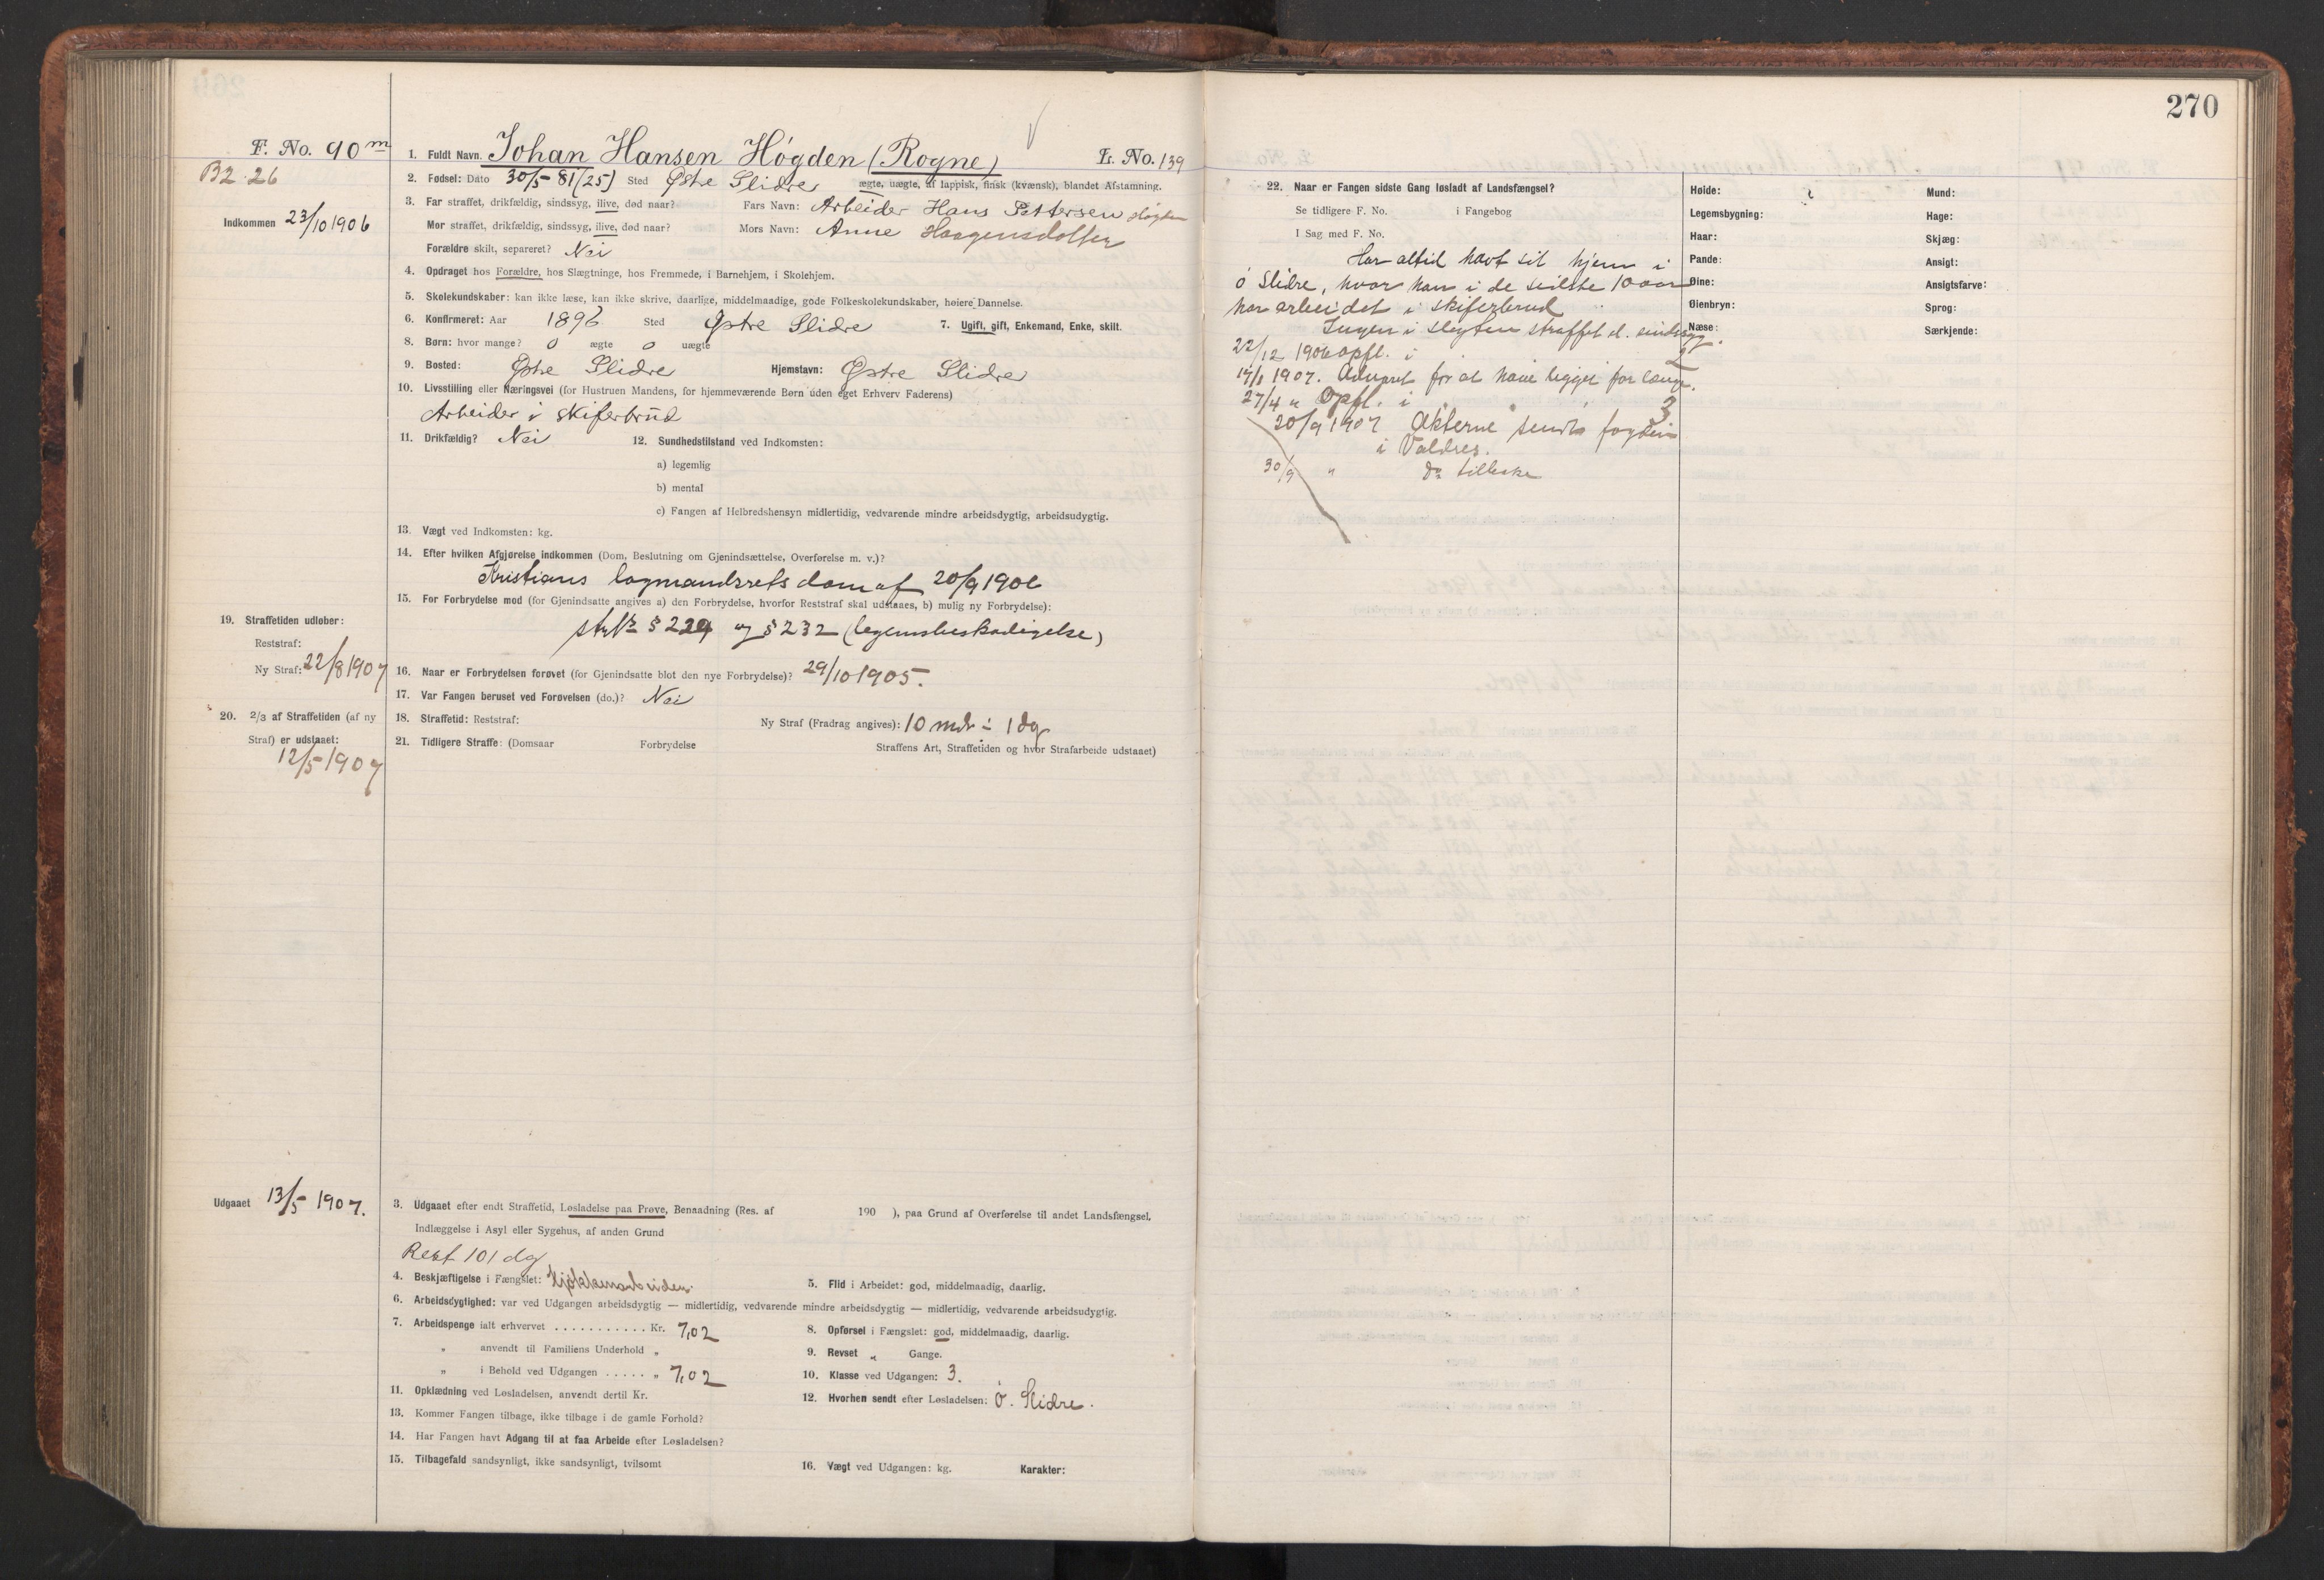 270
F. No. 90 m
B2 26
Indkommen 23/10 1906
1. Fuldt Navn. Johan Hansen Høgden (Rogne) L. No. 139
2. Fødsel: Dato 30/5 - 81 (25) Sted Østre Slidre ægte, uægte, af lappisk, finsk (kvænsk), blandet Afstamning.
3. Far straffet, drikfældig, sindssyg, ilive, død naar? Fars Navn: Arbeider Hans Pettersen Høgden
Mor straffet, drikfældig, sindssyg, ilive, død naar? Mors Navn: Anne Haagensdatter
Forældre skilt, separeret? Nei
4. Opdraget hos Forældre, hos Slægtninge, hos Fremmede, i Barnehjem, i Skolehjem.
5. Skolekundskaber: kan ikke læse, kan ikke skrive, daarlige, middelmaadige, gode Folkeskolekundskaber, høiere Dannelse.
6. Konfirmeret: Aar 1896 Sted Østre Slidre 7. Ugift, gift, Enkemand, Enke, skilt.
8. Børn: hvor mange? 0 ægte 0 uægte
9. Bosted: Østre Slidre Hjemstavn: Østre Slidre
10. Livsstilling eller Næringsvei (for Hustruen Mandens, for hjemmeværende Børn uden eget Erhverv Faderens)
Arbeider i skiferbrud
11. Drikfældig? Nei 12. Sundhedstilstand ved Indkomsten:
a) legemlig
b) mental
c) Fangen af Helbredshensyn midlertidig, vedvarende mindre arbeidsdygtig, arbeidsudygtig.
13. Vægt ved Indkomsten: kg.
14. Efter hvilken Afgjørelse indkommen (Dom, Beslutning om Gjenindsættelse, Overførelse m. v.)?
Kristians lagmandsrets dom af 20/9 1906
15. For Forbrydelse mod (for Gjenindsatte angives a) den Forbrydelse, hvorfor Reststraf skal udstaaes, b) mulig ny Forbrydelse):
§ 229 og § 232 (legemsbeskadigelse)
16. Naar er Forbrydelsen forøvet (for Gjenindsatte blot den nye Forbrydelse)? 29/10 1905.
17. Var Fangen beruset ved Forøvelsen (do.)? Nei
18. Straffetid: Reststraf: Ny Straf (Fradrag angives): 10 mdr ÷ 1 dg
19. Straffetiden udløber:
Reststraf:
Ny Straf: 22/8 1907
20. 2/3 af Straffetiden (af ny
Straf) er udstaaet:
12/5 1907
21. Tidligere Straffe: (Domsaar Forbrydelse Straffens Art, Straffetiden og hvor Strafarbeide udstaaet)
Udgaaet 13/5 1907.
3. Udgaaet efter endt Straffetid, Løsladelse paa Prøve, Benaadning (Res. af 190 ), paa Grund af Overførelse til andet Landsfængsel.
Indlæggelse i Asyl eller Sygehus, af anden Grund
Rest 101 dg
4. Beskjæftigelse i Fængslet: Kjøkkenarbeider. 5. Flid i Arbeidet: god, middelmaadig, daarlig.
6. Arbeidsdygtighed: var ved Udgangen arbeidsdygtig — midlertidig, vedvarende mindre arbeidsdygtig — midlertidig, vedvarende arbeidsudygtig.
7. Arbeidspenge ialt erhvervet . . . . . . . . . . . Kr. 7,02 8. Opførsel i Fængslet: god, middelmaadig, daarlig.
" anvendt til Familiens Underhold " 9. Revset " Gange.
" i Behold ved Udgangen . . . . . " 7,02 10. Klasse ved Udgangen: 3.
11. Opklædning ved Løsladelsen, anvendt dertil Kr. 12. Hvorhen sendt efter Løsladelsen: Ø. Slidre.
13. Kommer Fangen tilbage, ikke tilbage i de gamle Forhold?
14. Har Fangen havt Adgang til at faa Arbeide efter Løsladelsen?
15. Tilbagefald sandsynligt, ikke sandsynligt, tvilsomt 16. Vægt ved Udgangen: kg. Karakter:
22. Naar er Fangen sidste Gang løsladt af Landsfængsel?
Se tidligere F. No. i Fangebog
I Sag med F. No.
Har altid havt sit hjem i
Ø Slidre, hvor han i de sidste 10 aar
har arbeidet i skiferbrud
Ingen i slegten straffet el. sindssyg.
22/12 1906 opfl. i 2
17/1 1907. Advaret for at have ligget for længe.
27/4 " Opfl. i " 3
20/9 1907 Akterne sendt fogden
i Valdres.
30/9 " do tilbake
Høide:
Legemsbygning:
Haar:
Pande:
Øine:
Øienbryn:
Næse:
Mund:
Hage:
Skjæg:
Ansigt:
Ansigtsfarve:
Sprog:
Særkjende: